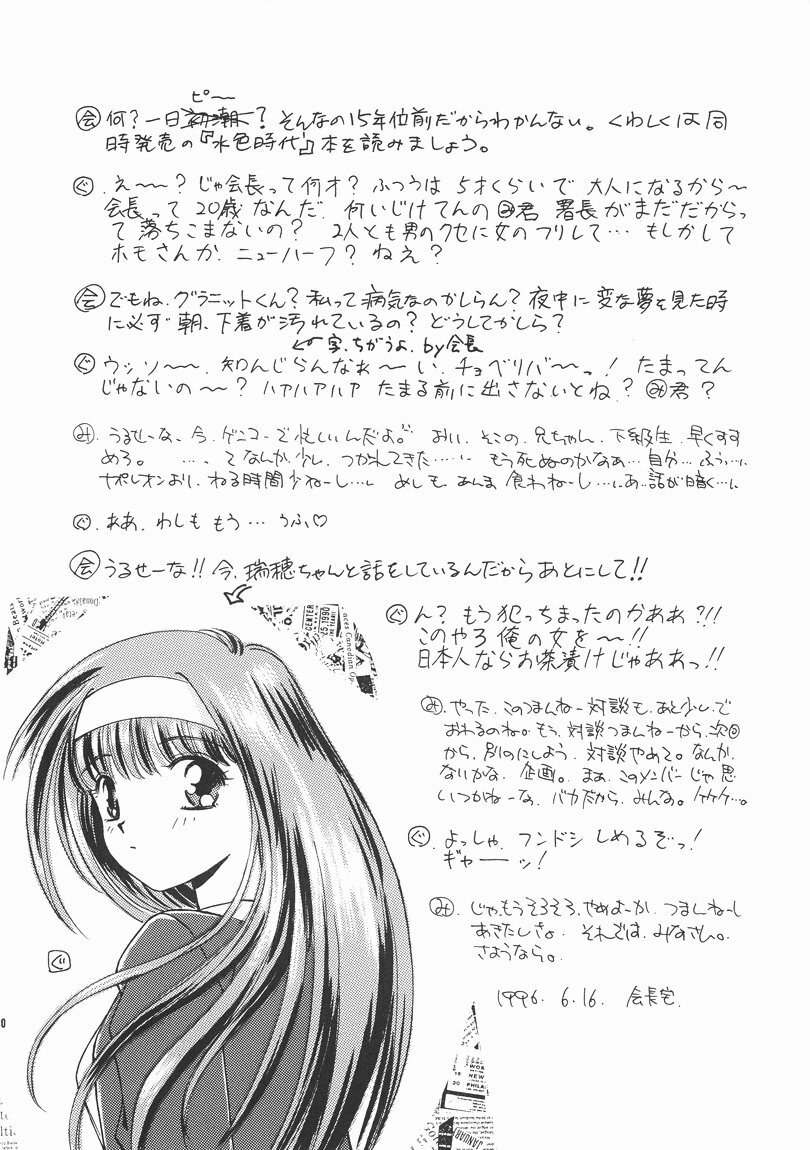 ピー〜
会 何？一日初潮？そんなの15年位前だからわかんない。くわしくは同
時発売の『水色時代』本を読みましょう。
ぐ. え〜〜？じゃ会長って何才？ふつうは 5才くらいで 大人になるから〜
会長って 20歳 なんだ. 何いじけてんの み君 署長がまだだからっ
て 落ちこまないの？ 2人とも男のクセに女のフリして… もしかして
ホモさんか. ニューハーフ？ねえ？
会 でもね. グラニットくん？私って病気なのかしらん？夜中に変な夢を見た時
に必ず朝、下着が汚れているの？どうしてかしら？
←字、ちがうよ. by会長
ぐ ウッソ〜〜. 知んじらんなぁ〜い. チョベリバ〜っ！ たまってん
じゃないの〜？ ハァハァハァ たまる前に出さないとね？ み君？
み. うるせーな、今、ゲンコーで忙しいんだよ。 おい、そこの、兄ちゃん、下級生、早くすす
めろ。 ….、てなんか、少し、つかれてきた…… もう死ぬのかなぁ…自分…ふぅ…
ナポレオンより、ねる時間少ねーし… めしも、あんま 食わねーし…あ、話が暗く…
ぐ. ああ、わしも もう… うふ♡
会 うるせーな!! 今、瑞穂ちゃんと話をしているんだからあとにして!!
ぐ ん？ もう犯っちまったのかああ?!!
このやろ 俺の女を〜!!
日本人ならお茶漬けじゃああっ!!
み. やった、このつまんねー対談も、あと少しで
おわるのね。もう、対談つまんねーから、次回
から、別のにしよう、対談やめて。なんか、
ないかな、企画。まぁ、このメンバーじゃ思
いつかねーな、バカだから、みんな。ケケケ…。
ぐ. よっしゃ、フンドシ しめるぞっ！
ギャーッ！
み. じゃ、もうそろそろ、やめよーか、つまんねーし
あきたしさ。 それでは、みなさん。
さようなら。
1996. 6.16. 会長宅.
ぐ
CENTER
1990
WOR
NEW
PHILA
JANUARY
0